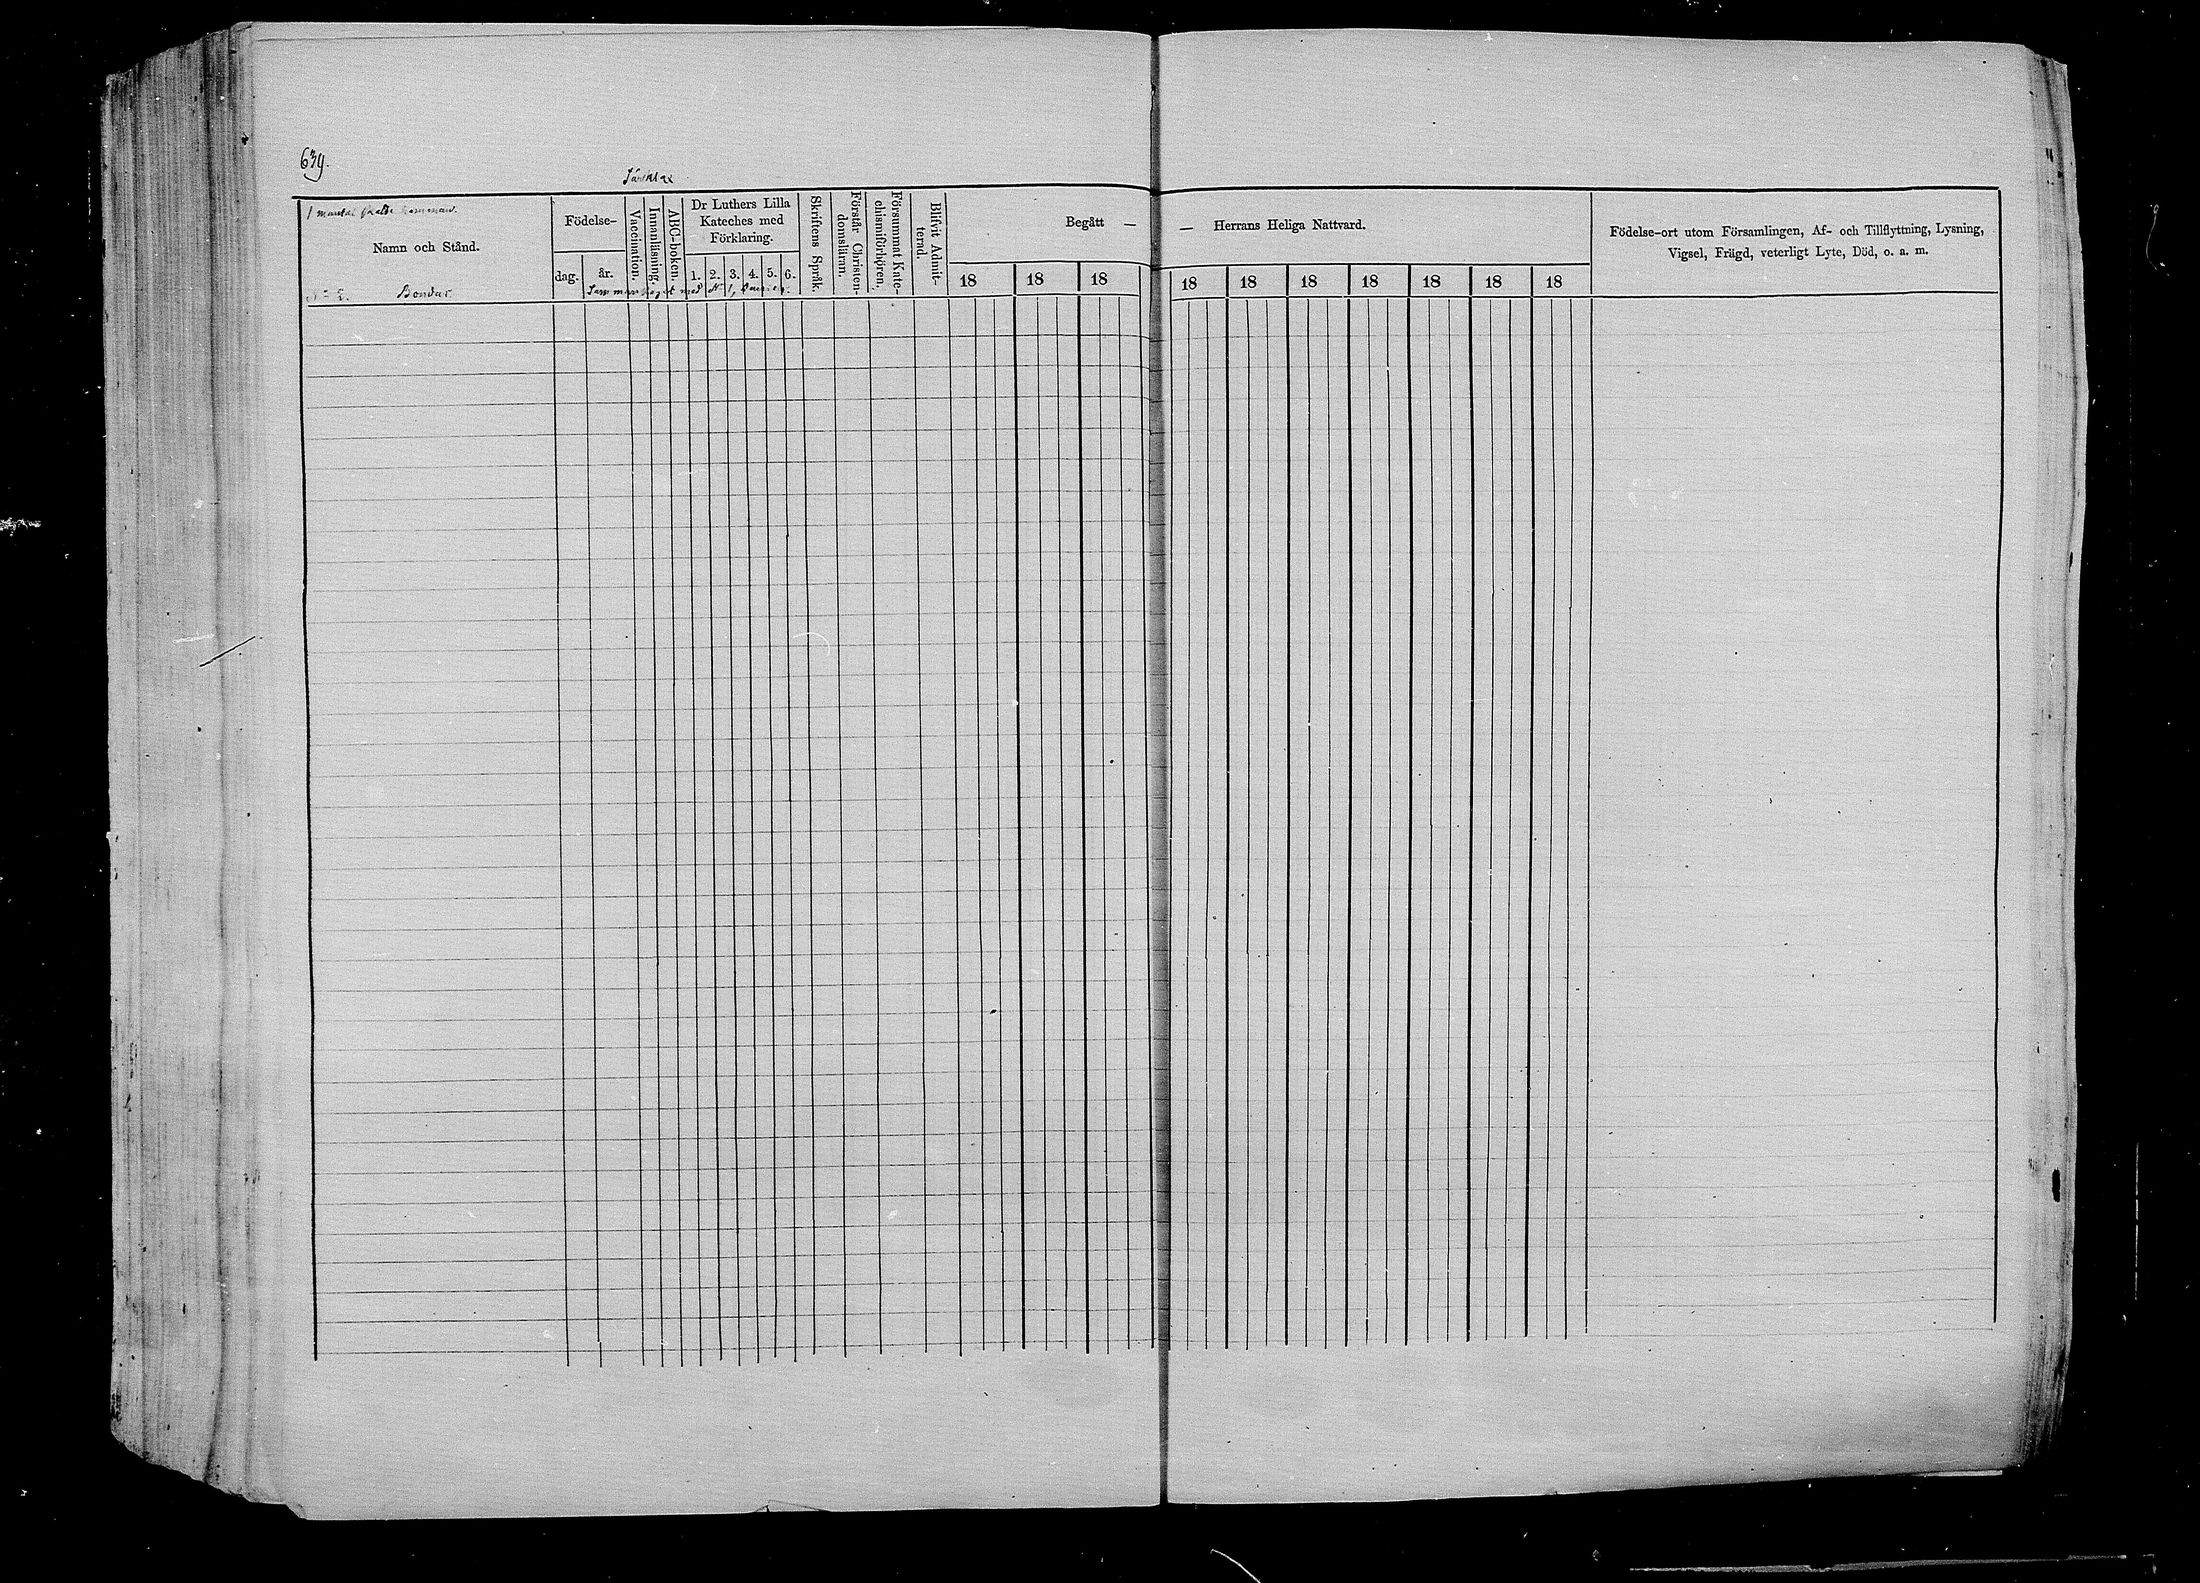 639.
Särklax
1 mantal skatte hemman.
Namn och Stånd.
Födelse-
dag.
år.
Vaccination.
Innanläsning.
ABC-boken.
Dr Luthers Lilla
Kateches med
Förklaring.
1. 2. 3. 4. 5. 6.
Skriftens Språk.
Förstår Christen-
domsläran.
Försummat Kate-
chismiförhören.
Blifvit Admit-
terad.
Begått —
18 18 18
— Herrans Heliga Nattvard.
18 18 18 18 18 18 18
Födelse-ort utom Församlingen, Af- och Tillflyttning, Lysning,
Vigsel, Frägd, veterligt Lyte, Död, o. a. m.
№ 2. Bondas.
Sammanslaget med № 1,